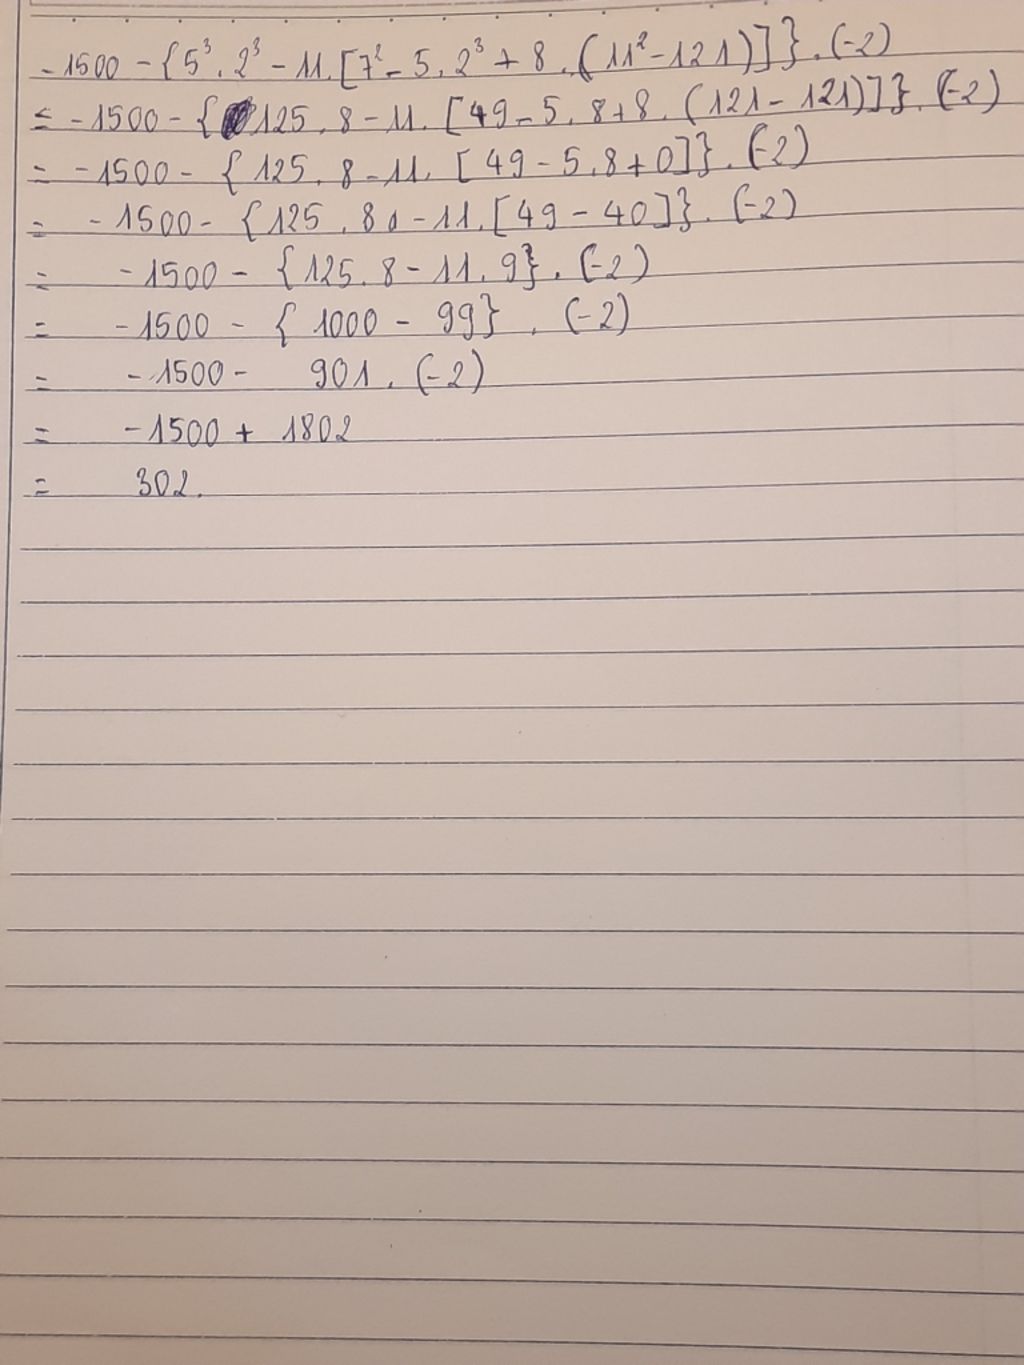 -1500 - {5³ . 2³ - 11. [7² - 5. 2³ + 8 . (11² - 121)]} . (-2)
= -1500 - {125 . 8 - 11. [49 - 5. 8 + 8. (121 - 121)]} . (-2)
= -1500 - {125. 8 - 11. [49 - 5.8 + 0]} . (-2)
= -1500 - {125 . 8 - 11. [49 - 40]} . (-2)
= -1500 - {125. 8 - 11. 9} . (-2)
= -1500 - {1000 - 99} . (-2)
= -1500 - 901 . (-2)
= -1500 + 1802
= 302.